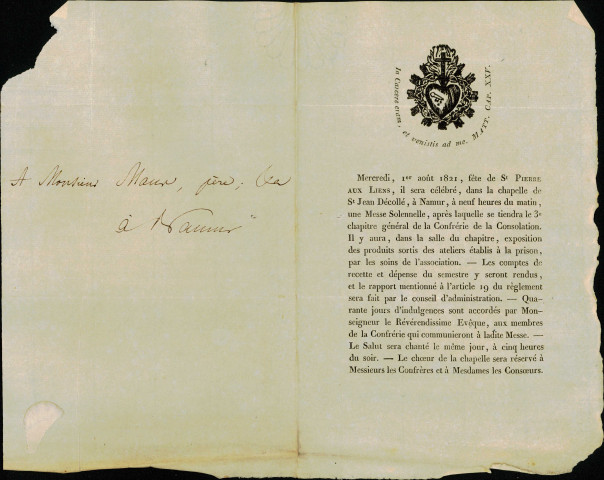 A Monsieur
père,
à Namur
In Carcere eram, et venistis ad me. MATT. CAP. XXV.
Mercredi, 1er août 1821, fête de St PIERRE
AUX LIENS, il sera célébré, dans la chapelle de
St Jean Décollé, à Namur, à neuf heures du matin,
une Messe Solennelle, après laquelle se tiendra le 3e
chapitre général de la Confrérie de la Consolation.
Il y aura, dans la salle du chapitre, exposition
des produits sortis des ateliers établis à la prison,
par les soins de l'association. — Les comptes de
recette et dépense du semestre y seront rendus,
et le rapport mentionné à l'article 19 du règlement
sera fait par le conseil d'administration. — Qua-
rante jours d'indulgences sont accordés par Mon-
seigneur le Révérendissime Evêque, aux membres
de la Confrérie qui communieront à ladite Messe. —
Le Salut sera chanté le même jour, à cinq heures
du soir. — Le chœur de la chapelle sera réservé à
Messieurs les Confrères et à Mesdames les Consœurs.